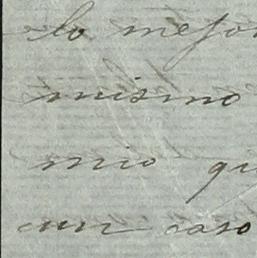 lo mejor
mismo
mio qu
un caso